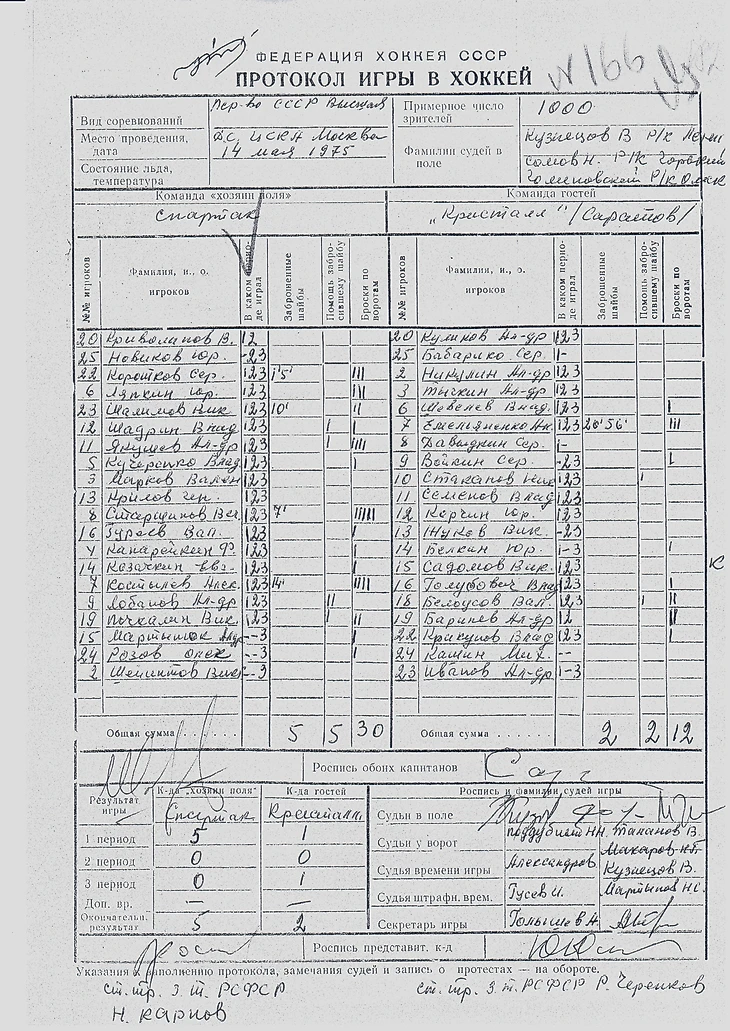 ФЕДЕРАЦИЯ ХОККЕЯ СССР
N 166
ПРОТОКОЛ ИГРЫ В ХОККЕЙ
Вид соревнований Пер-во СССР Высшая
Примерное число зрителей 1000
Место проведения, дата ДС. ЦСКА Москва 14 мая 1975
Состояние льда, температура
Фамилии судей в поле Кузнецов В Р/к
Сомов Н. Р/к
Р/к Омск
Команда «хозяин поля» Команда гостей
Спартак „Кристалл" /Саратов/
№№ игроков Фамилия, и., о. игроков В каком периоде играл Заброшенные шайбы Помощь забросившему шайбу Броски по воротам №№ игроков Фамилия, и., о. игроков В каком периоде играл Заброшенные шайбы Помощь забросившему шайбу Броски по воротам
20 Криволапов В. 12 20 Куликов Ал-др 123
25 Новиков Юр. -23 25 Бабарико Сер. 1-
22 Коротков Сер. 123 1'5' III 2 Никулин Ал-др 123
6 Ляпкин Юр. 123 III 3 Тычкин Ал-др 123
23 Шалимов Вик 123 10' II 6 Шевелев Влад. 123 I
12 Шадрин Влад 123 I II 7 Емельяненко Ан. 123 20'56' III
11 Якушев Ал-др 123 I IIII 8 Давыдкин Сер. 1-
5 Кучеренко Влад 123 I 9 Войкин Сер. -23 I
3 Марков Вален 123 10 Стаканов Ник 123 I
13 Крылов Ген. 123 11 Семенов Влад 123
8 Старшинов Вяч. 123 7' IIIII 12 Корчин Юр. 123
16 Гуреев Вал. 123 I 13 Жуков Вик. -23
4 Канарейкин Ф. 123 I 14 Белкин Юр. 1-3 I
14 Казачкин Евг. 123 I 15 Садомов Вик. 123
7 Костылев Алек. 123 14' IIII 16 Голубович Влад 123 I
9 Лобанов Ал-др 123 II 18 Белоусов Вал. 123 I II
19 Пачкалин Вик. 123 I II 19 Баринев Ал-др 12 II
15 Мартынюк Алдр --3 I 22 Крикунов Влад 123 I
24 Розов Олег --3 I 24 Кашин Мих. --
2 --3 23 Иванов Ал-др 1-3
Общая сумма . . . . . . 5 5 30 Общая сумма . . . . . . 2 2 12
Роспись обоих капитанов
Результат игры К-да „хозяин поля" К-да гостей Роспись и фамилии судей игры
Спартак Кристалл Судьи в поле
1 период 5 1 Судьи у ворот Поддубный Н.Н. Таланов В.
2 период 0 0 Судья времени игры Александров Макаров Кузнецов В.
3 период 0 1 Судья штрафн. врем. Гусев И. Мартынов Н.С.
Доп. вр. — —
Окончательн. результат 5 2 Секретарь игры Голышев А.
Роспись представит. к-д
Указания к заполнению протокола, замечания судей и запись о протестах — на обороте.
ст. тр. З. т. РСФСР ст. тр. З. т. РСФСР Р. Черенков
Н. Карпов